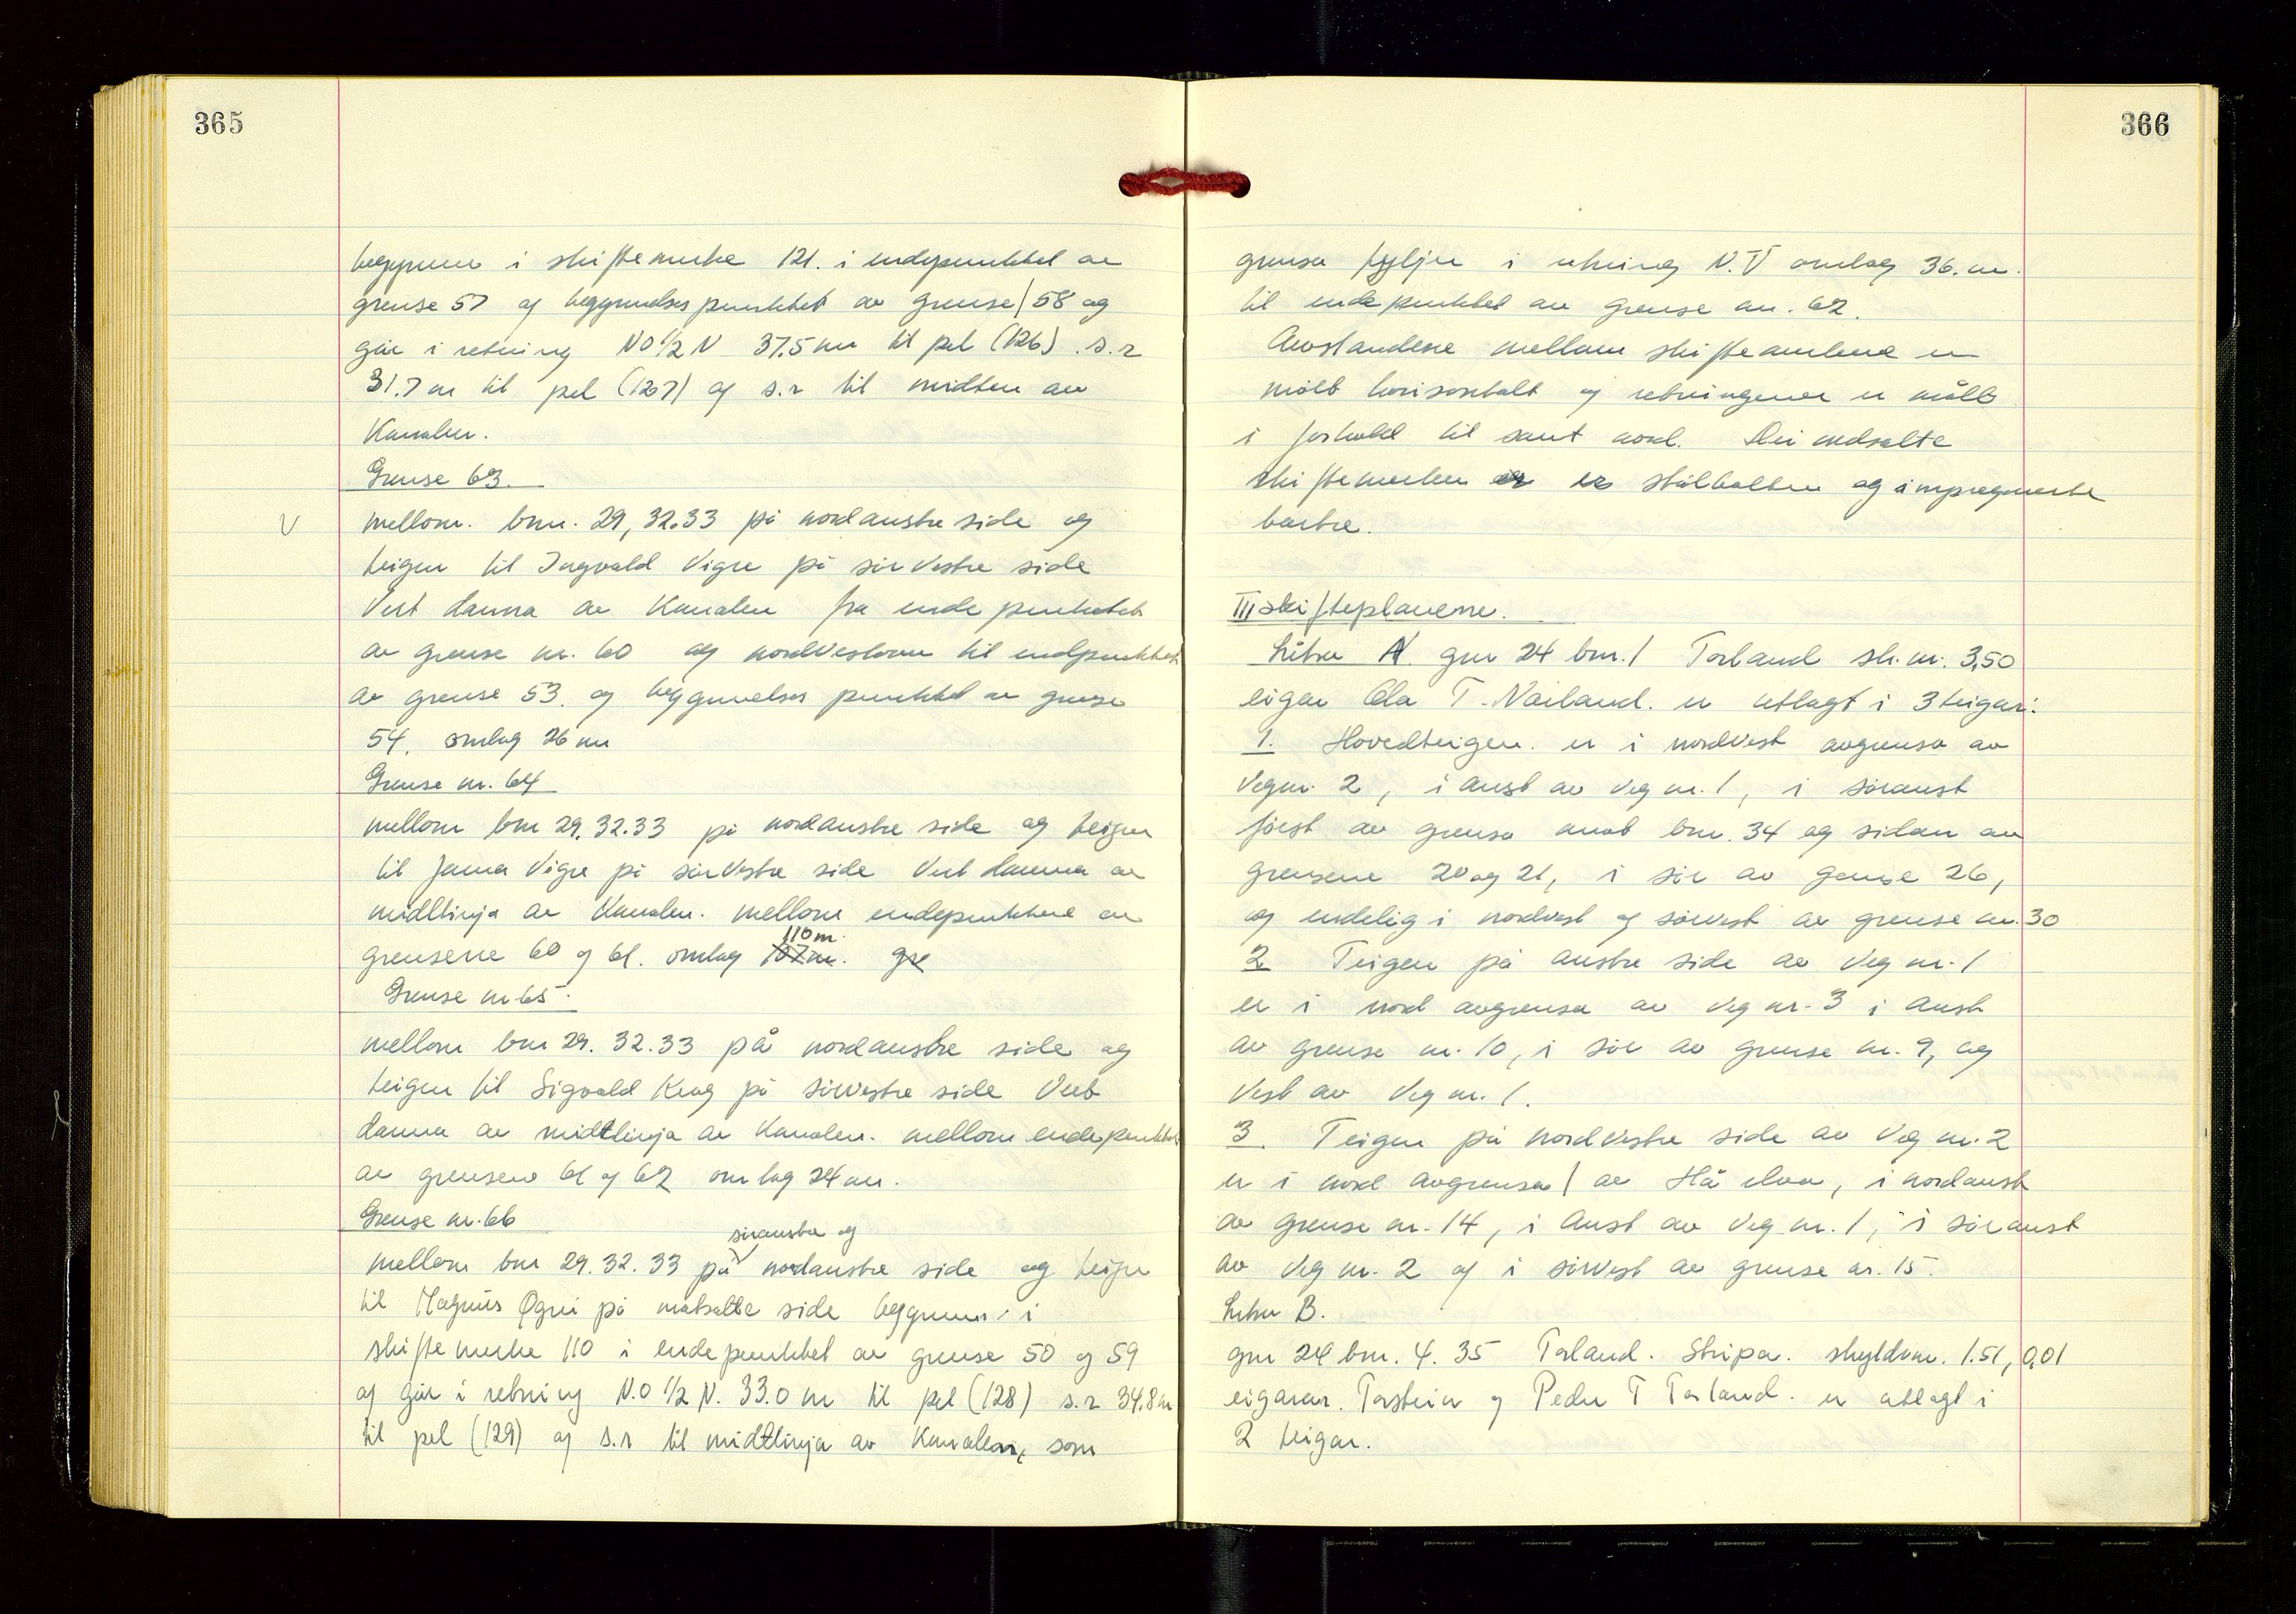 365
begynner i skiftemerke 121. i endepunktet av
grense 57 og begynnelsespunktet av grense 58 og
går i retning NO½N 37.5m til pel (126). s.r
31.7m til pel (127) og s.r til midten av
Kanalen.
Grense 63.
V
mellom. bnr. 29, 32.33 på nordaustre side og
teigen til Ingvald Vigre på sørvestre side
Vert danna av Kanalen fra endepunktet
av grense nr. 60 og nordvestover til endpunktet
av grense 53. og begynnelses punktet av grense
54, omlag 26 m
Grense nr. 64
mellom bnr 29.32.33 på nordaustre side og teigen
til Janna Vigre på sørvestre side Vert danna av
midtlinja av Kanalen. mellom endepunktene av
110m.
grensene 60 og 61. omlag 107m. gre
Grense nr 65.
mellom bnr 29. 32.33 på nordaustre side og
teigen til Sigvald Krag på sørvestre side Vert
danna av midtlinja av Kanalen. mellom endepunktet
av grensene 61 og 62 omlag 24m.
Grense nr. 66
søraustre og
mellom bnr 29.32.33 på nordaustre side og teigen
til Magnus Øgrei på motsatte side begynner i
skiftemerke 110 i endepunktet av grense 50 og 59
og går i retning N.O ½ N. 33.0 m til pel (128) s.r 34.8m
til pel (129) og s.r til midtlinja av Kanalen, som
366
grensa fyljer i retning N.V omlag 36.m.
til endepunktet av grense nr. 62.
Avstandene mellom skiftemerkene er
målt horisontalt og retningene er målt
i forhold til sant nord. Dei nedsatte
skiftemerker er er stålbolter og impregnerte
III skifteplanene.
Litra A. gnr 24 bnr. 1 Torland sk.m. 3,50
eigar Ola T. Nærland. er utlagt i 3 teigar:
1. Hovedteigen. er i nordvest avgrensa av
Veg nr. 2, i aust av Veg nr. 1, i søraust
først av grensa mot bnr. 34 og sidan av
grensene 20 og 21, i sør av grense 26,
og endelig i nordvest og sørvest av grense nr. 30
2 Teigen på austre side av Veg nr. 1
er i nord avgrensa av Veg nr. 3 i aust
av grense nr. 10, i sør av grense nr. 9, og
Vest av Veg nr. 1.
3. Teigen på nordvestre side av Veg nr. 2
er i nord avgrensa av Hå elva, i nordaust
av grense nr. 14, i aust av Veg nr. 1, i søraust
av Veg nr. 2 og i sørvest av grense nr. 15.
Litra B.
gnr 24 bnr. 4. 35 Torland. Stripa. skyldm. 1.51, 0,01
eigarar. Torstein og Peder T Torland. er utlagt i
2 teigar.